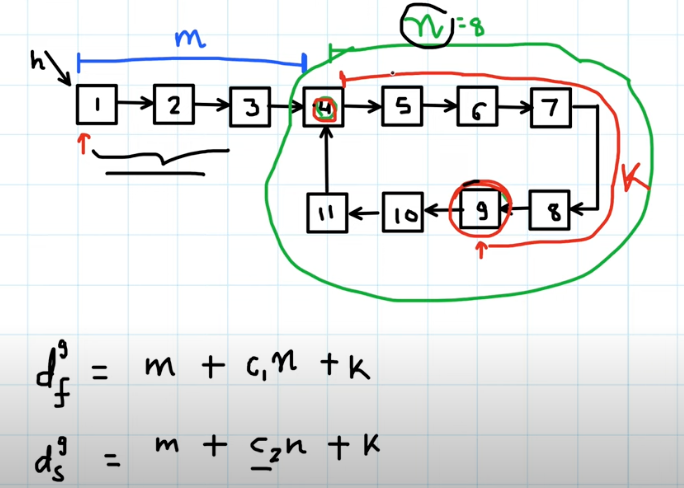 n=8
m
h
1 2 3 4 5 6 7
K
11 10 9 8
d_f^9 = m + c₁n + k
d_s^9 = m + c₂n + k